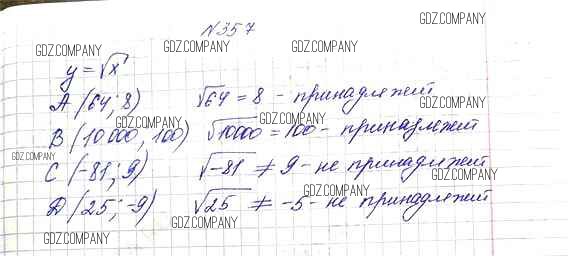 №357
GDZ.COMPANY GDZ.COMPANY GDZ.COMPANY GDZ.COMPANY
y = √x
A (64; 8) √64 = 8 - принадлежит
GDZ.COMPANY GDZ.COMPANY GDZ.COMPANY
B (10 000, 100) √10000 = 100 - принадлежит
GDZ.COMPANY
C (-81; 9) √-81 ≠ 9 - не принадлежит
GDZ.COMPANY GDZ.COMPANY
D (25; -9) √25 ≠ -5 - не принадлежит
GDZ.COMPANY GDZ.COMPANY GDZ.COMPANY